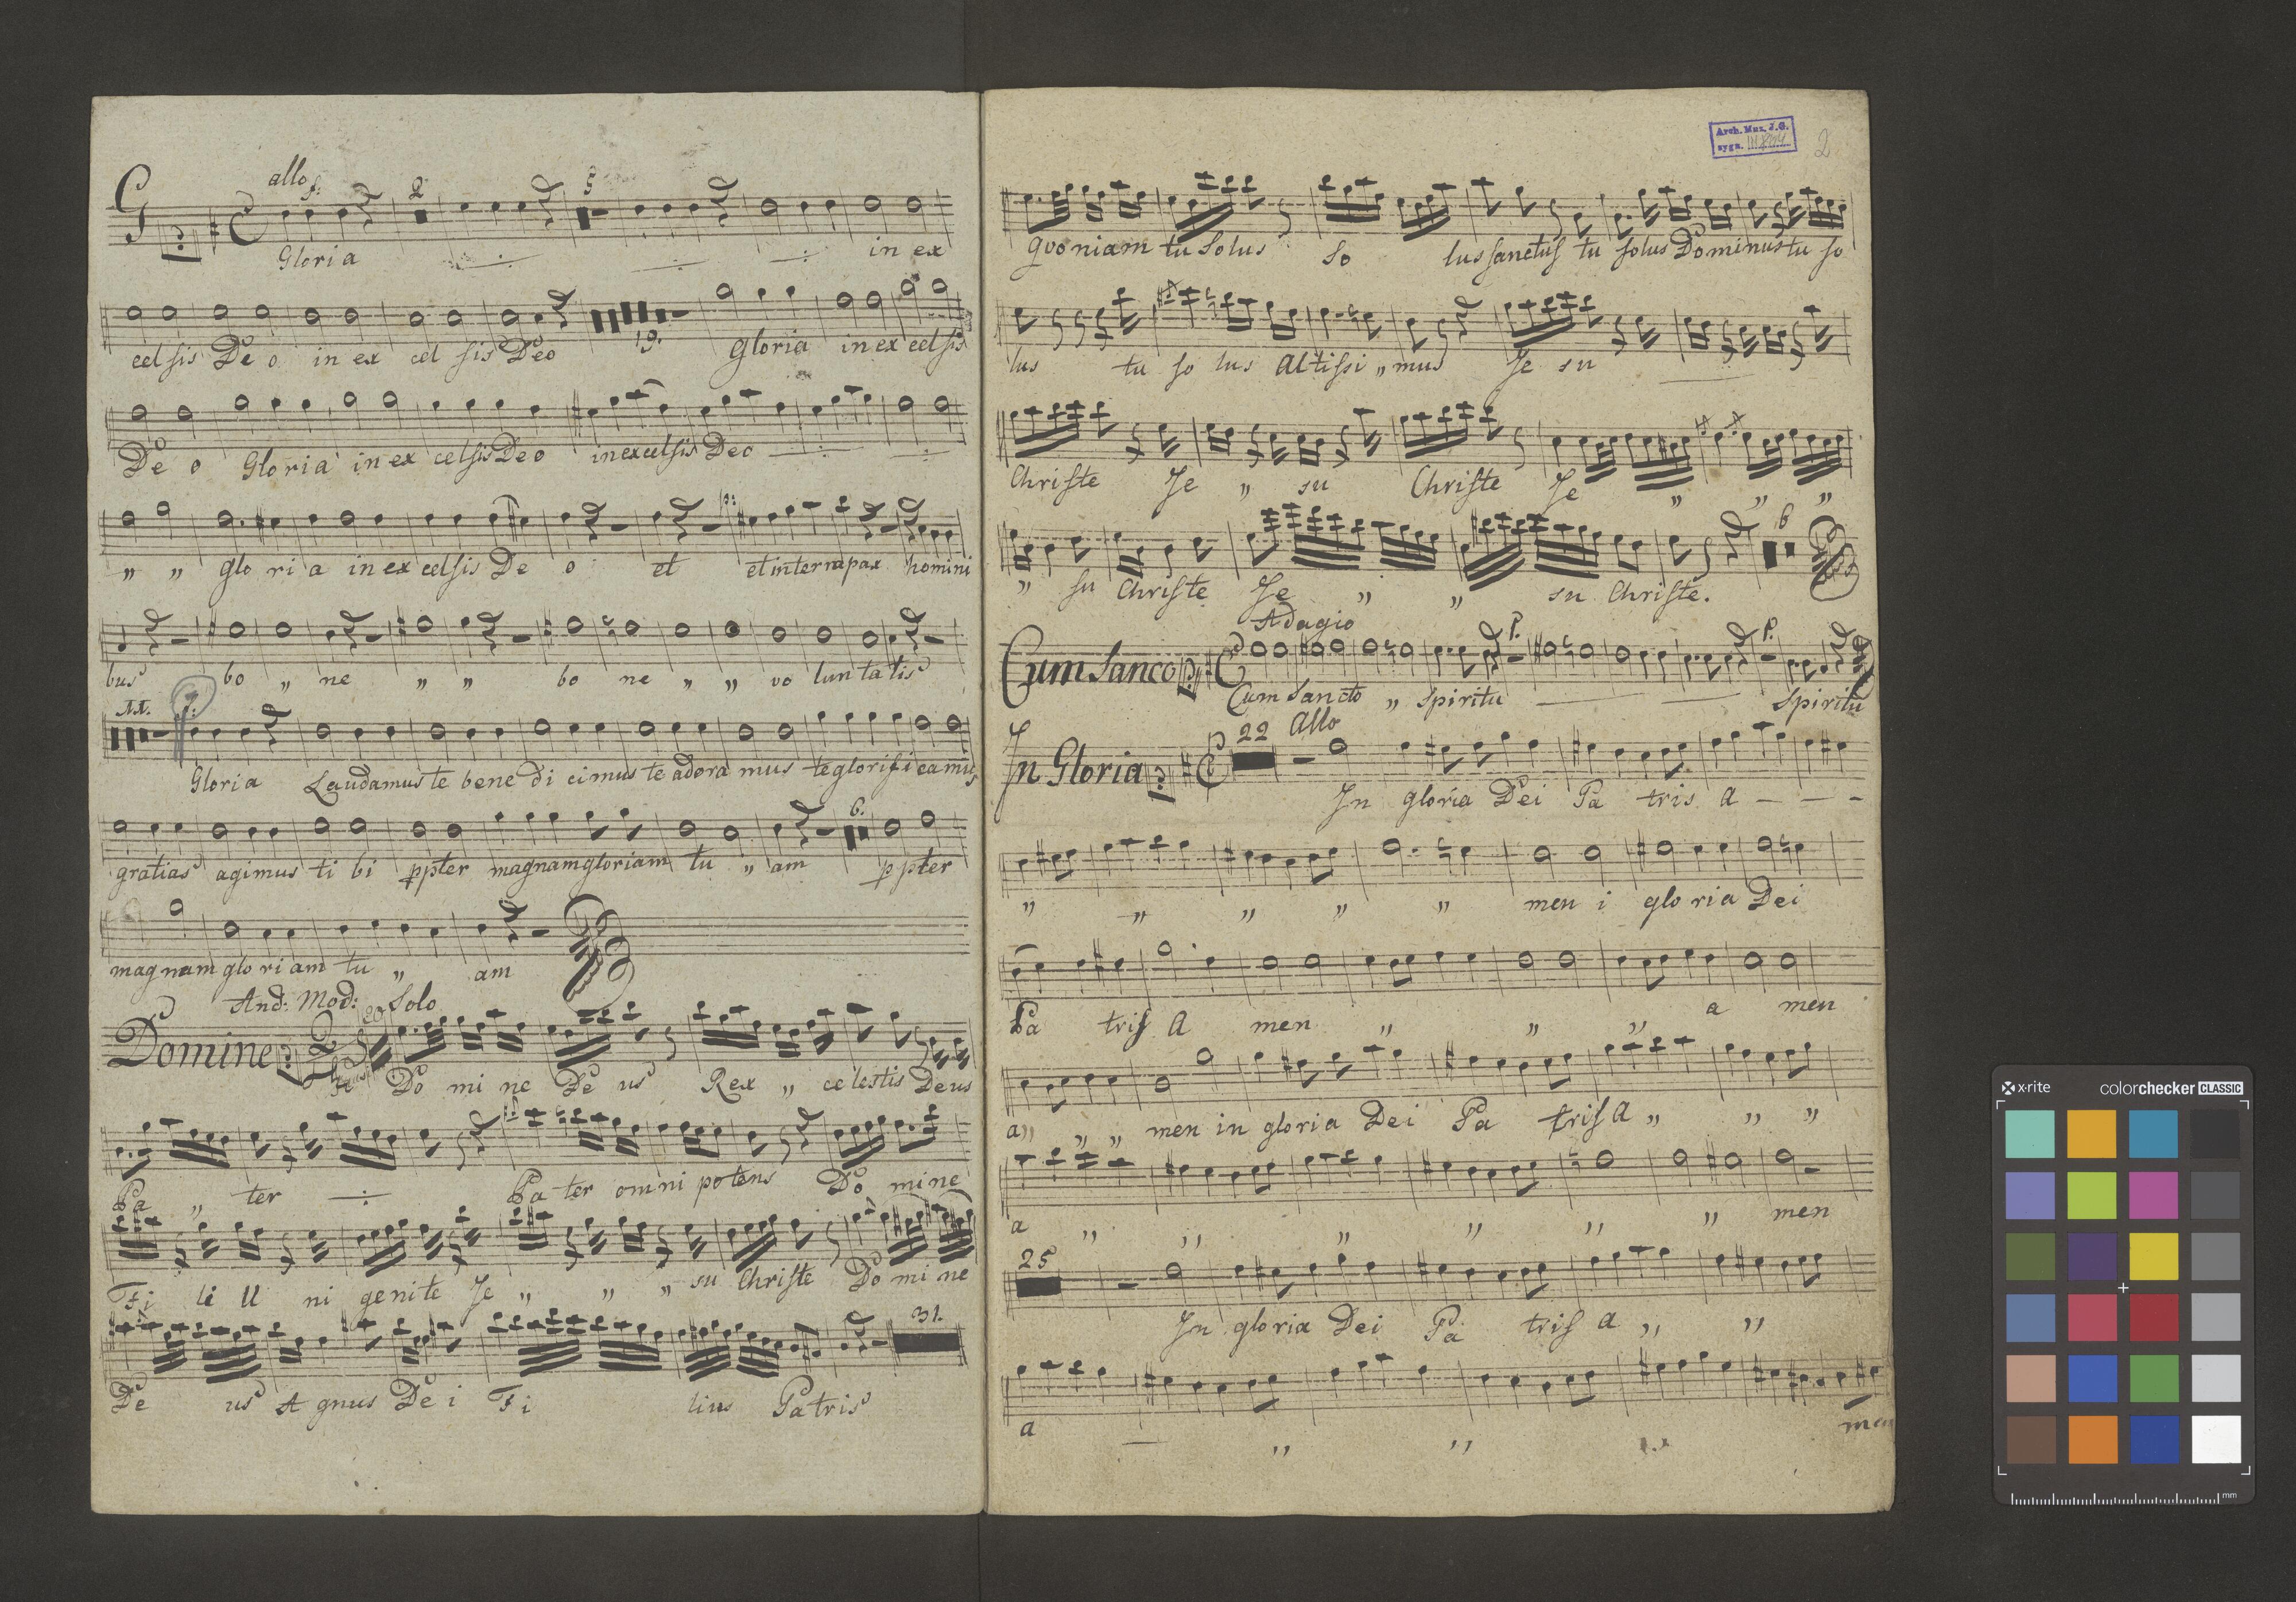 allo f:
G 2 5
Gloria in ex
celsis Deo in ex cel sis Deo 19. Gloria in ex celsis
De o Gloria in ex celsis Deo in excelsis Deo
p:
„ „ glo ri a in ex celsis De o et et in terra pax homini
bus bo „ ne „ „ bo ne „ „ vo lun ta tis
11. 7.
Gloria Laudamus te bene di cimus te adora mus te glorifi camus
6.
gratias agimus ti bi ppter magnam gloriam tu „ am ppter
magnam glo ri am tu „ am
And: Mod: Solo
20
Domine 2
Do mi ne De us Rex „ celestis Deus
Pa „ ter Pa ter omni potens Do mi ne
Fi li U ni genite Je „ „ „ su Christe Do mi ne
31.
De us A gnus De i Fi lius Patris
Arch. Muz. J. G.
sygn. III
2
Quoniam tu Solus So lus sanctus tu solus Dominus tu so
lus tu so lus Altissi „ mus Je su
Christe Je „ su Christe Je „ „ „
6
„ su Christe Je „ „ su Christe.
Adagio
p. p.
Cum Sanco
Cum Sancto „ spiritu spiritu
22 Allo
In Gloria
In gloria Dei Pa tris A — — —
„ „ „ „ „ men i glo ria Dei
Pa tris A men „ „ „ a men
a „ „ „ men in gloria Dei Pa tris A „ „ „
a „ „ „ „ „ „ men
25
In gloria Dei Pa tris a „ „
a — „ „ men
x-rite colorchecker CLASSIC
mm